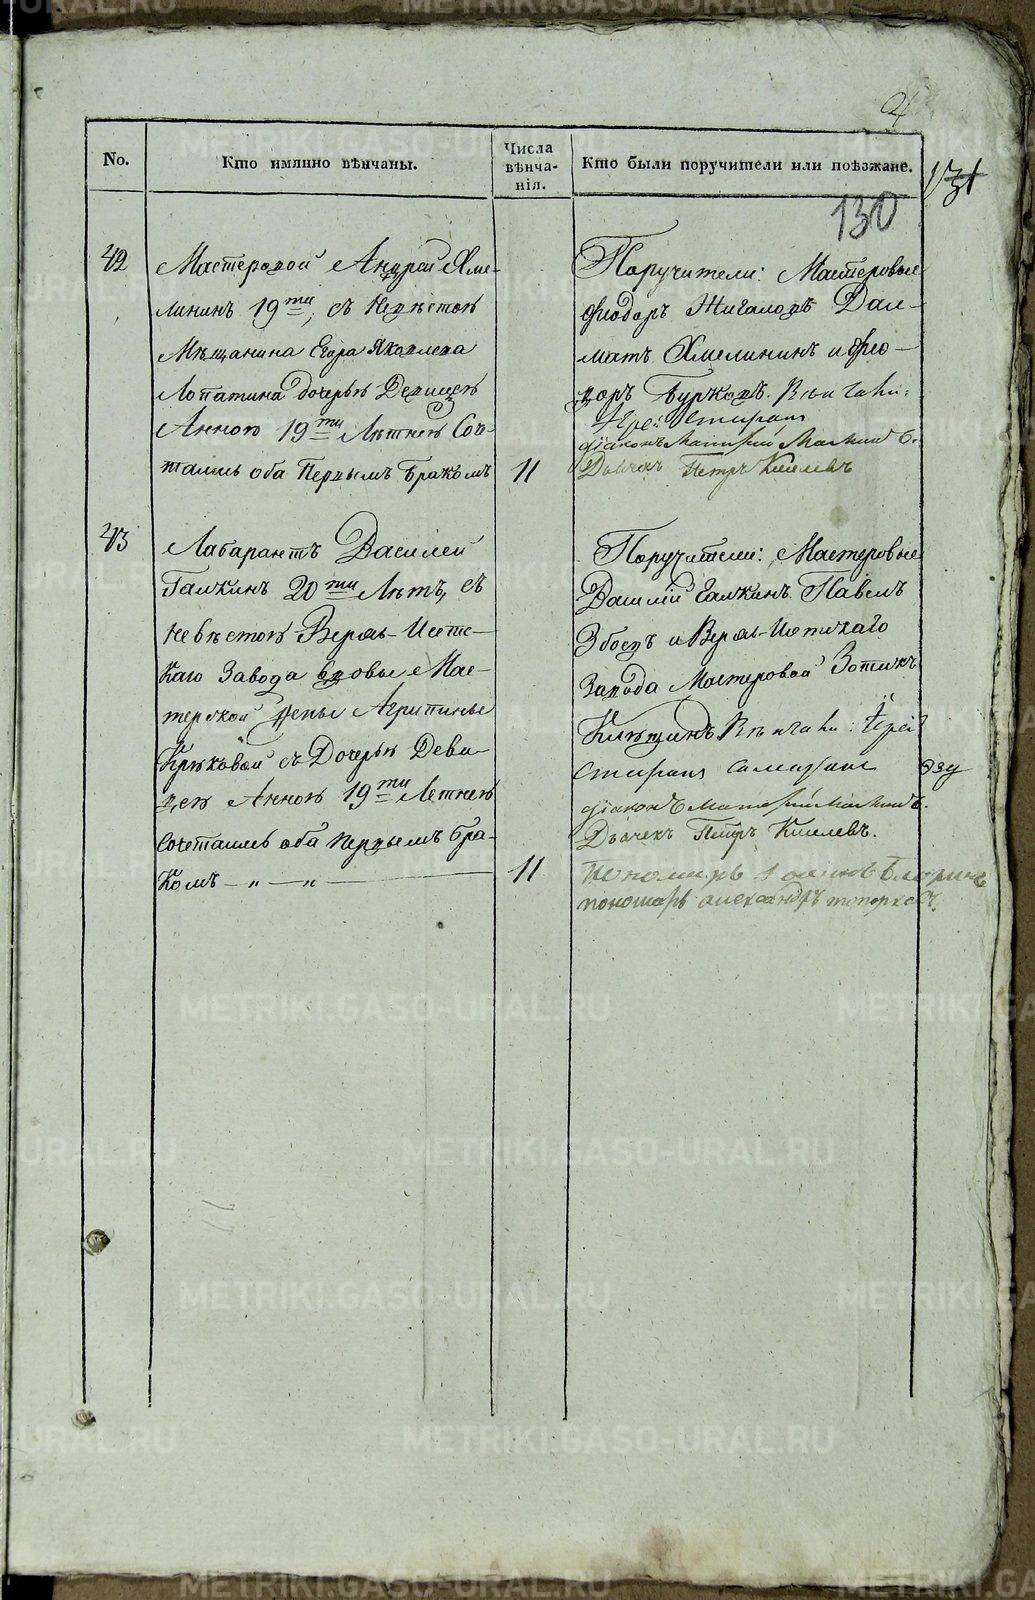 4
No.
Кто имянно вѣнчаны.
Числа
вѣнча-
нія.
Кто были поручители или поѣзжане.
131
130
42
Мастеровой Андрей Хме-
лининъ 19ти, съ Невѣстою
Мѣщанина Егора Яковлева
Лопатина дочерью Девицею
Анною 19ти Лѣтнею Соч-
тались оба Первымъ Бракомъ
11
Поручители: Мастеровые
Фіодоръ Жигаловъ Дал-
матъ Хмелининъ и Фео-
доръ Бурковъ. Вѣнчали:
Іерей Стефанъ
діаконъ
Дьячекъ Петръ Киселевъ
43
Лаборантъ Василей
Галкинъ 20ти Лѣтъ, съ
невѣстою Верхъ-Исетс-
Каго Завода вдовы Мас-
терской Жены Агрипины
Крюковой съ Дочерью Деви-
цею Анною 19ти Летнею
сочетались оба первымъ бра-
комъ — „ — „ —
11
Поручители: Мастеровые
Василій Галкинъ. Павелъ
Збоевъ и Верхъ-Исетскаго
Завода Мастеровой Зотикъ
Клещинъ Вѣнчали: Іерей
Стефанъ
діаконъ
Дьячекъ Петръ Киселевъ.
пономарь
пономарь александръ топорковъ.
METRIKI.GASO-URAL.RU